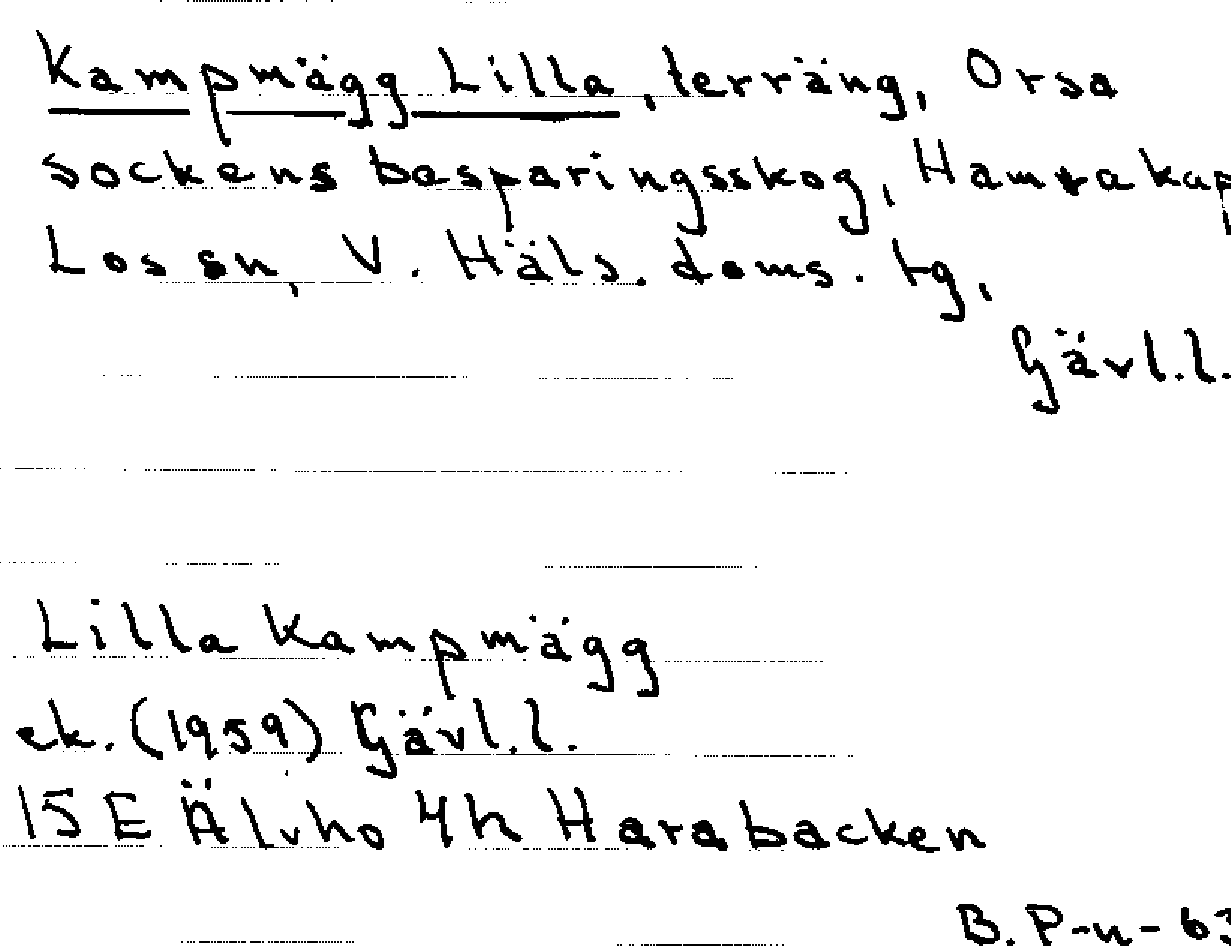 Kampmägg Lilla, terräng, Orsa
sockens besparingsskog, Hamra kap
Los sn, V. Häls. doms. tg,
Gävl.l.
Lilla Kampmägg
ek. (1959) Gävl.l.
15 E Älvho 4h Harabacken
B. P-n-63